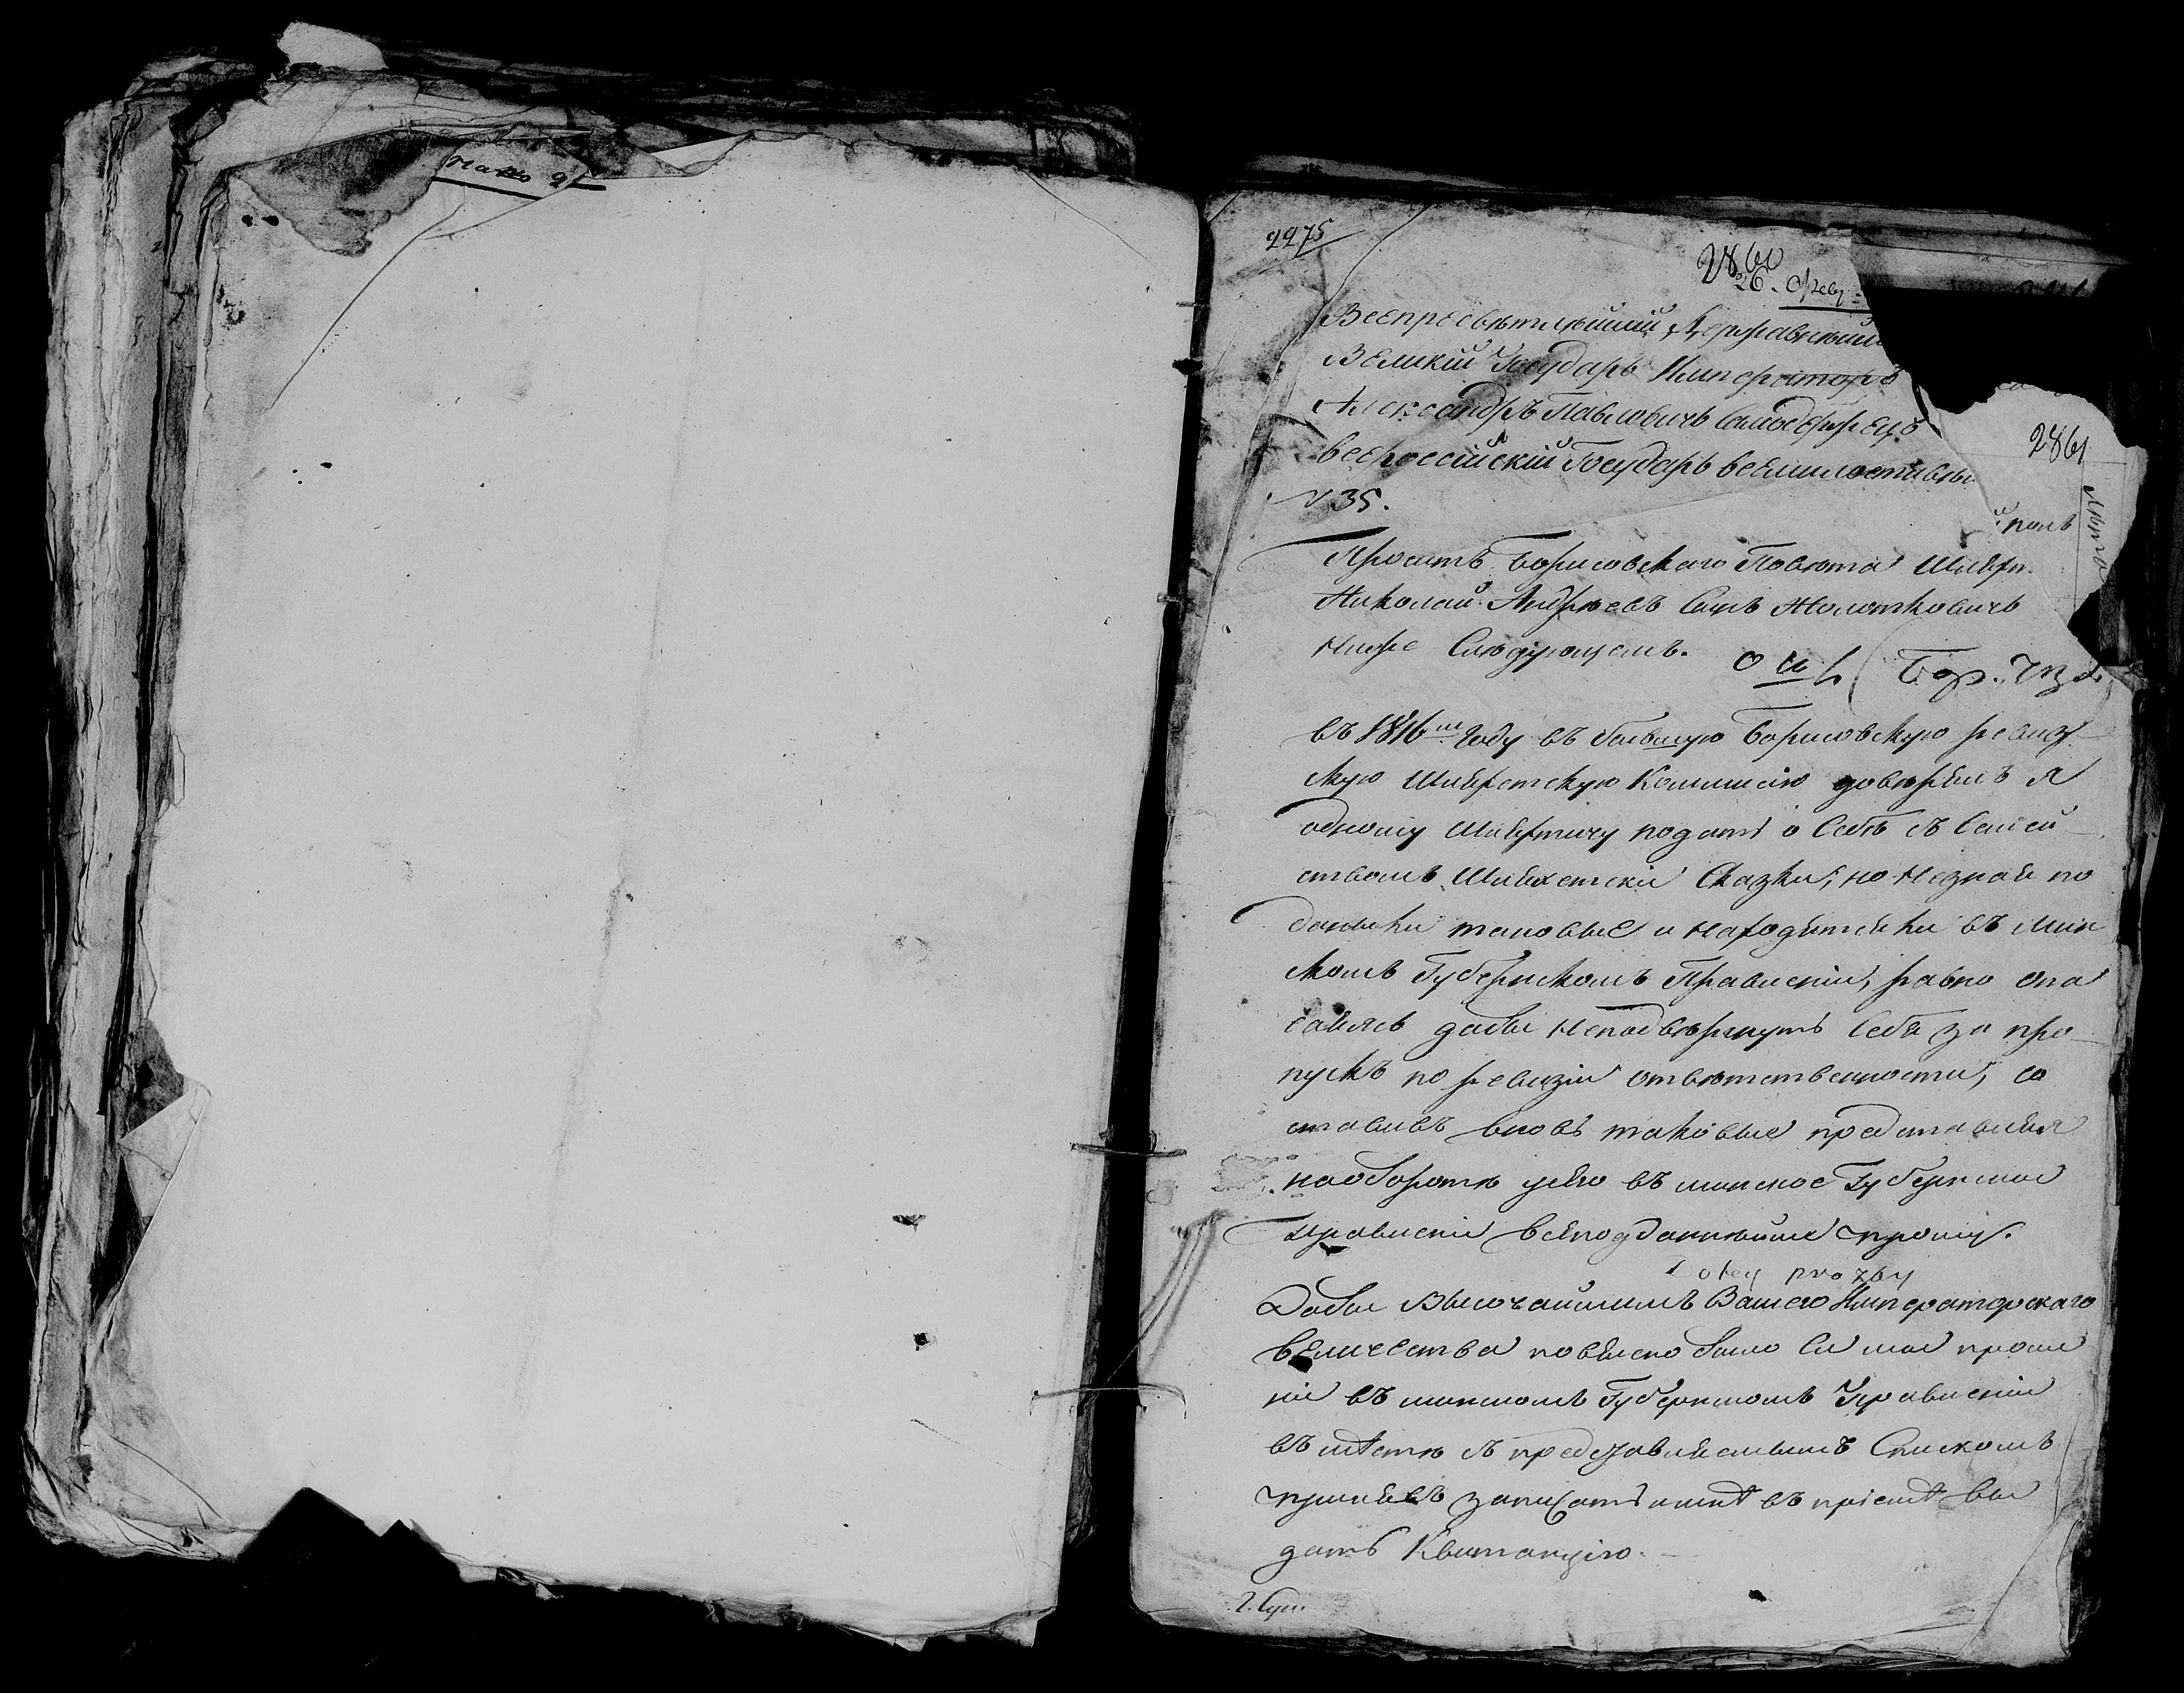 2275
2861
26. Февр
Всепресвѣтлѣйшій Державнѣйшій
Великій Государь Императоръ
Александръ Павловичъ Самодержецъ
всероссійскій Государь всемилостивы
№ 35.
2861
Проситъ Борисовского Повѣта Шляхт.
Николай Андрѣевъ Сынъ Молотковичъ
Ниже Слѣдующемъ.
въ 1816м Году въ бывшую Борисовскую ревиз
скую Шляхетскую Коммисію довѣрилъ я
одному Шляхтичу подать о Себѣ съ Семей
ствомъ Шляхетскіи Сказки, но Незнаю по
даныли таковые и находятсяли въ Мин
скомъ Губернскомъ Правленіи, равно опа
саясь дабы Неподвергнуть Себя за про
пускъ по ревизіи отвѣтственности, со
ставивъ вновь таковые представляя
наоборотѣ сего въ минское Губернское
правленіе всеподданнѣйше прошу.
Do tey prozby
Дабы Высочайшимъ Вашего Императорскаго
величества повѣлено было Сіе мое проше
ніе въ минскомъ Губернскомъ Правленіи
въ мѣстѣ съ представляемымъ Спискомъ
принявъ записать имнѣ въ пріемѣ вы
дать Квитанцію.